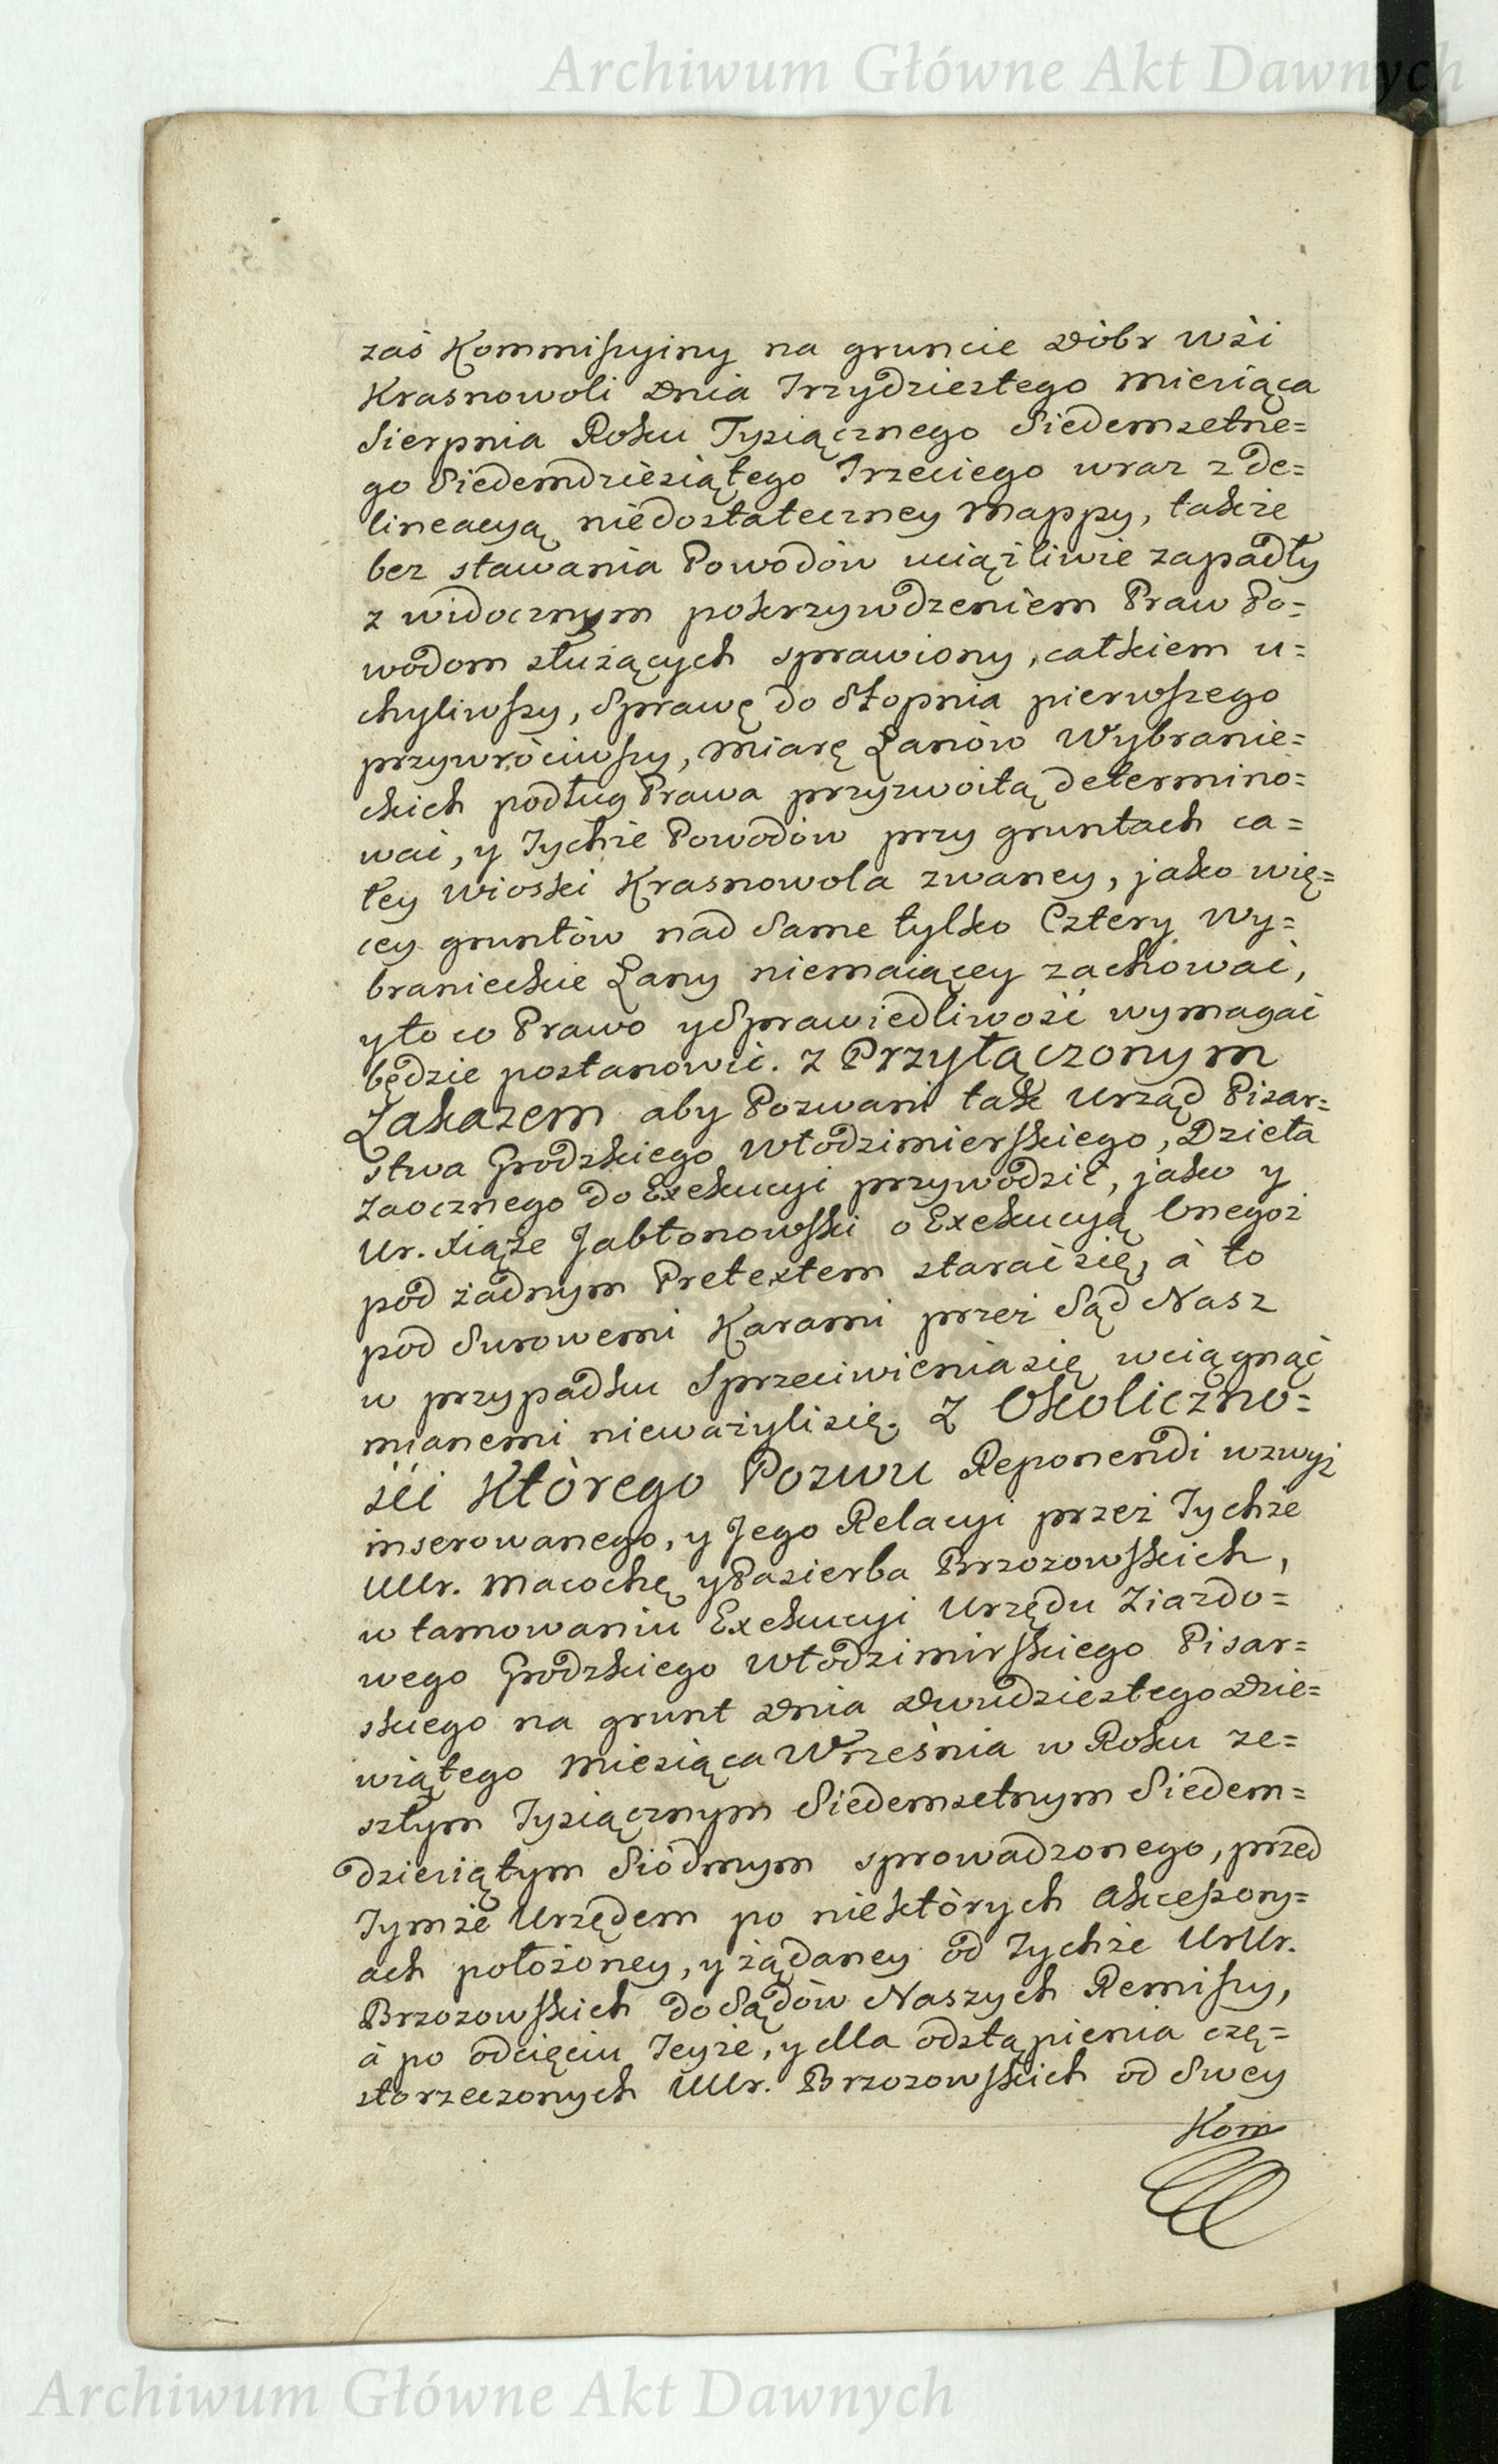 Archiwum Główne Akt Dawnych
zaś Kommissyiny na gruncie Dóbr wśi
Krasnowoli Dnia Trzydziestego Miesiąca
Sierpnia Roku Tysiącznego Siedemsetne=
go Siedemdziesiątego Trzeciego wraz z de=
lineacyą niedostateczney Mappy, także
bez stawania Powodów uciążliwie zapadły
z widocznym pokrzywdzeniem Praw Po=
wodom służących sprawiony, całkiem u=
chyliwszy, Sprawę do Stopnia pierwszego
przywróciwszy, Miarę Łanów Wybranie=
ckich podług Prawa przyzwoitą determino=
wać, y Tychże Powodów przy gruntach ca=
łey Wioski Krasnowola zwaney, jako wię=
cey gruntów nad Same tylko Cztery Wy=
branieckie Łany niemaiącey zachować,
y to co Prawo y Sprawiedliwość wymagać
będzie postanowić. Z Przyłączonym
Zakazem aby Pozwani tak Urząd Pisar=
stwa Grodzkiego Włodzimierskiego, Dzieła
Zaocznego do Exekucyi przywodzić, jako y
Ur. Xiąże Jabłonowski o Exekucyą Onegoż
pod żadnym Pretextem starać się, à to
pod Surowemi Karami przez Sąd Nasz
w przypadku Sprzeciwienia się wciągnąć
mianemi nieważyli się. Z Okoliczno=
ści Którego Pozwu Reponendi wzwyż
inserowanego, y Jego Relacyi przez Tychże
UUr. Macochę y Pasierba Brzozowskich,
w tamowaniu Exekucyi Urzędu Ziazdo=
wego Grodzkiego Włodzimirskiego Pisar=
skiego na grunt Dnia Dwudziestego Dzie=
wiątego Miesiąca Września w Roku ze=
szłym Tysiącznym Siedemsetnym Siedem=
dziesiątym Siódmym sprowadzonego, przed
Tymże Urzędem po niektórych Akcessory=
ach położoney, y żądaney od Tychże UrUr.
Brzozowskich do Sądów Naszych Remissy,
à po odcięciu Teyże, y dla odstąpienia czę=
storzeczonych UUr. Brzozowskich od Swey
Kom
Archiwum Główne Akt Dawnych